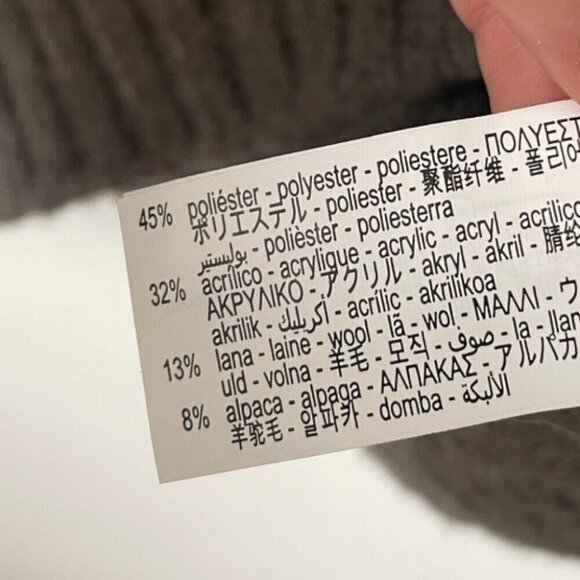 45% poliéster - polyester - poliestere - ΠΟΛΥΕΣΤ
ポリエステル - poliester - 聚酯纤维 - 폴리에
بوليستير - polièster - poliesterra
32% acrílico - acrylique - acrylic - acryl - acrilico
ΑΚΡΥΛΙΚΟ - アクリル - akryl - akril - 腈纶
akrilik - أكريليك - acrílic - akrilikoa
13% lana - laine - wool - lã - wol - ΜΑΛΛΙ - ウ
uld - volna - 羊毛 - 모직 - صوف - la - llan
8% alpaca - alpaga - ΑΛΠΑΚΑΣ - アルパカ
羊驼毛 - 알파카 - domba - الألبكة